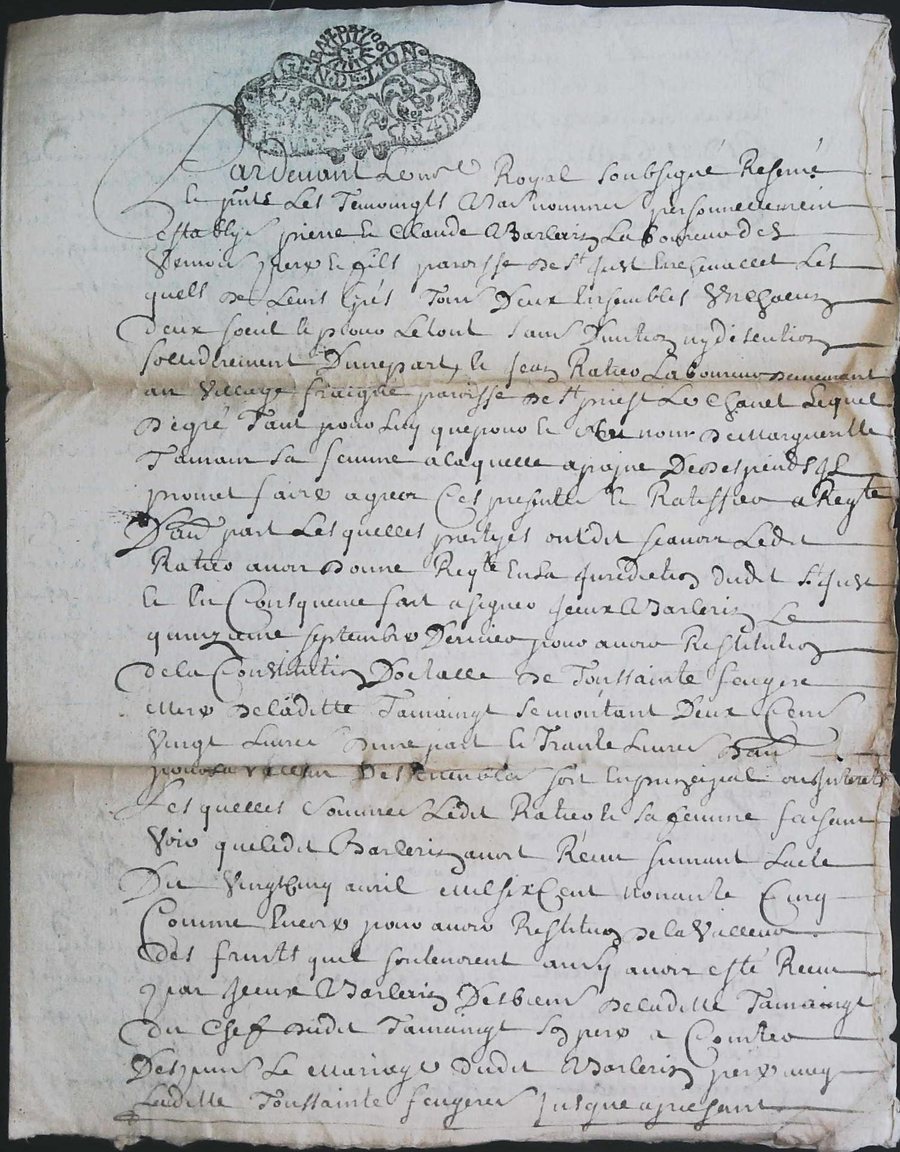 EN DE LION
Pardevant Le no.re Royal Soubsigné Reservé
le p.nts Les Temoingts Bas nommes personnellement
establys pierre le Claude Barlerin Laboureur de
Vernois pere le fils paroisse de S.t Just En chevallet Les
quels de Leurs grés Tous Deux Ensembles
deux seul le pour Letout sans Division ny disention
sollidairement D'une part, le Jean Ratier Laboureur demeurant
au Village fraigne paroisse de S.t priest Lequel
De gré Tant pour Luy que pour le nom De Margueritte
Tamain sa femme a laquelle
promet faire agreer Ces presentes le Ratiffier a Reg.te
D'au. part Les quelles partyes ont dit scavoir Ledit
Ratier avoir Donne Reg.te En La Jurediction dudit S.t Just
le En Consequence fait asigner Jceux Barlerin Le
quinzieme septembre Dernier pour avoir Restitution
de la Constitution Dotalle de Toussainte feugere
mere De laditte Tamaingt se montant Deux Cens
Vingt Livres d'une part le Trante Livres D'au.
pour la Valleur Des soit En principal ou Interets
Les quelles sommes Ledit Ratier le sa femme faisant
Voir que ledit Barlerin avoit Receu suivant Lacte
Du Vingt Cinq avril mil six Cent nonante Cinq
Comme Encore pour avoir Restition de la Valleur
des fruits quil soutenoient ainsy avoir esté Receu
par Jceux Barlerin Des biens de laditte Tamaingt
du Chef dudit Tamaingt son pere a Compter
Despuis Le Mariage dudit Barlerin pere
Laditte Toussainte feugeres Jusque apresant